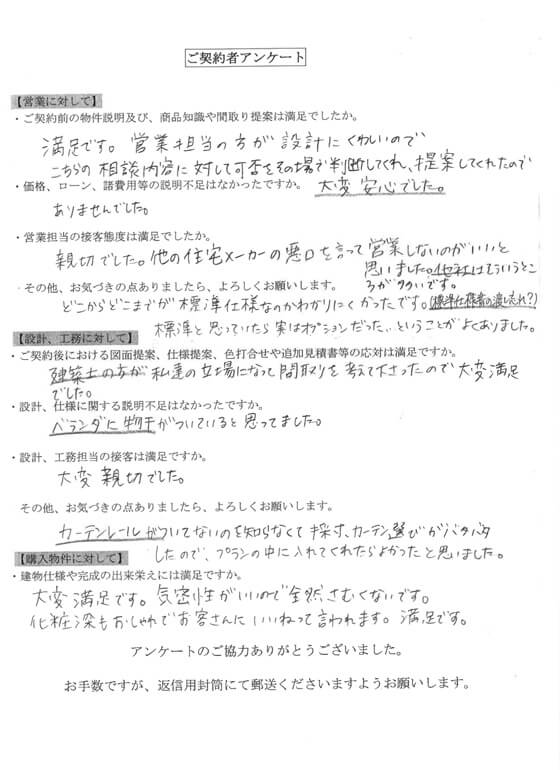 ご契約者アンケート
【営業に対して】
・ご契約前の物件説明及び、商品知識や間取り提案は満足でしたか。
満足です。営業担当の方が設計にくわしいので
こちらの相談内容に対して可否をその場で判断してくれ、提案してくれたので
・価格、ローン、諸費用等の説明不足はなかったですか。 大変安心でした。
ありませんでした。
・営業担当の接客態度は満足でしたか。
親切でした。他の住宅メーカーの悪口を言って営業しないのがいいと
思いました。他社はそういうとこ
・その他、お気づきの点ありましたら、よろしくお願いします。 ろが多いです。
どこからどこまでが標準仕様なのかわかりにくかったです。(標準仕様書の渡し忘れ?)
標準と思っていたら実はオプションだった、ということがよくありました。
【設計、工務に対して】
・ご契約後における図面提案、仕様提案、色打合せや追加見積書等の応対は満足ですか。
建築士の方が私達の立場になって間取りを考えて下さったので大変満足
でした。
・設計、仕様に関する説明不足はなかったですか。
ベランダに物干がついていると思ってました。
・設計、工務担当の接客は満足ですか。
大変親切でした。
その他、お気づきの点ありましたら、よろしくお願いします。
カーテンレールがついてないのを知らなくて採寸、カーテン選びがバタバタ
したので、プランの中に入れてくれたらよかったと思いました。
【購入物件に対して】
・建物仕様や完成の出来栄えには満足ですか。
大変満足です。気密性がいいので全然さむくないです。
化粧梁もおしゃれでお客さんにいいねって言われます。満足です。
アンケートのご協力ありがとうございました。
お手数ですが、返信用封筒にて郵送くださいますようお願いします。